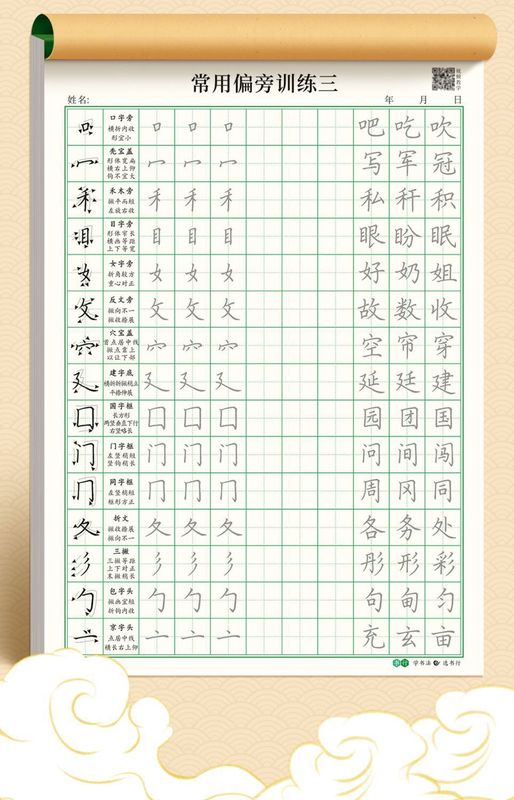 常用偏旁训练三
视频教学
姓名: 年 月 日
口字旁
横折内收
形宜小
口 口 口 吧 吃 吹
秃宝盖
形体宽扁
横右上仰
钩不宜大
冖 冖 冖 写 军 冠
禾木旁
撇平画短
左放右收
禾 禾 禾 私 秆 积
目字旁
形体窄长
横画等距
上下等宽
目 目 目 眼 盼 眠
女字旁
折角较方
重心对正
女 女 女 好 奶 姐
反文旁
撇向不一
撇收捺展
攵 攵 攵 故 数 收
穴宝盖
首点居中线
撇点靠上
以让下部
穴 穴 穴 空 帘 穿
建字底
横折折撇稳立
平捺伸展
廴 廴 廴 延 廷 建
国字框
长方形
两竖垂直下行
右竖略长
囗 囗 囗 园 团 国
门字框
左竖稍短
竖钩稍长
门 门 门 问 间 闯
同字框
左竖稍短
框形方正
冂 冂 冂 周 冈 同
折文
撇收捺展
撇向不一
夂 夂 夂 各 务 处
三撇
三撇等距
上下对正
末撇稍长
彡 彡 彡 彤 形 彩
包字头
撇画宜短
折钩内收
勹 勹 勹 句 甸 匀
京字头
点居中线
横长右上仰
亠 亠 亠 充 玄 亩
学书法 选书行